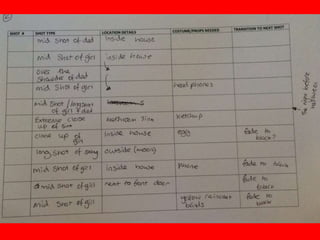 SHOT # SHOT TYPE LOCATION DETAILS COSTUME/PROPS NEEDED TRANSITION TO NEXT SHOT
mid shot of dad inside house
Mid Shot of girl inside house
over the
shoulder of dad
mid Shot of girl headphones
mid Shot/longshot
of girl & dad
Extreme close
up of
ketchup
close up of
girl inside house egg fade to
back?
long shot of outside (moon)
mid shot of girl inside house phone fade to back
mid shot of girl next to front door fade to
back
mid shot of girl yellow raincoat
fade to
back
The night before
halloween